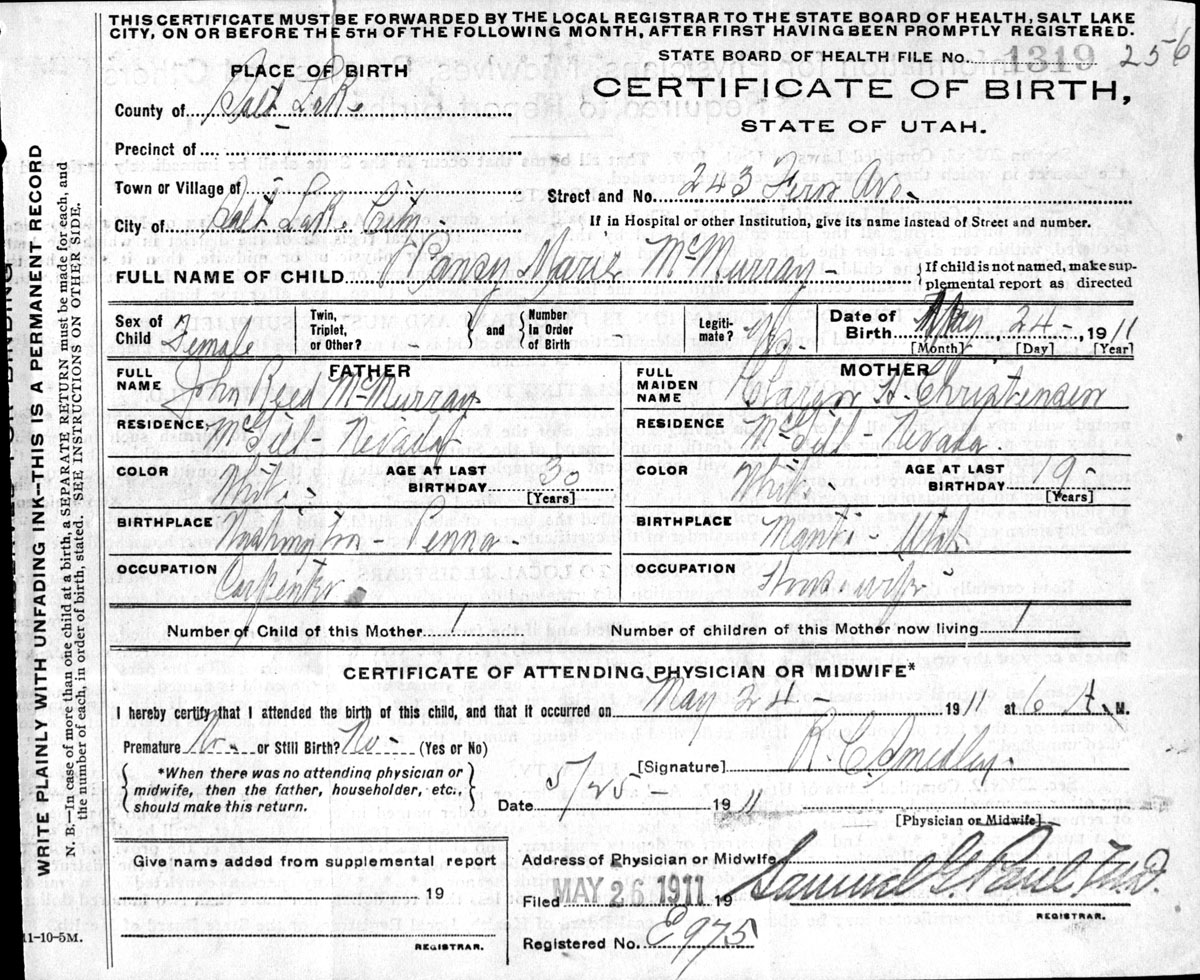 THIS CERTIFICATE MUST BE FORWARDED BY THE LOCAL REGISTRAR TO THE STATE BOARD OF HEALTH, SALT LAKE
CITY, ON OR BEFORE THE 5TH OF THE FOLLOWING MONTH, AFTER FIRST HAVING BEEN PROMPTLY REGISTERED.
STATE BOARD OF HEALTH FILE No. 1319 256
PLACE OF BIRTH
CERTIFICATE OF BIRTH,
STATE OF UTAH.
County of Salt Lake
Precinct of
Town or Village of
Street and No. 243 Fern Ave-
City of Salt Lake City
If in Hospital or other Institution, give its name instead of Street and number.
FULL NAME OF CHILD Pansy Marie McMurray- { If child is not named, make supplemental report as directed
Sex of Child Female
Twin, Triplet, or Other?
and { Number in Order of Birth
Legitimate? Yes-
Date of Birth May 24- 1911
[Month] [Day] [Year]
FATHER
FULL NAME John Reed McMurray
RESIDENCE McGill- Nevada
COLOR White- AGE AT LAST BIRTHDAY 30 [Years]
BIRTHPLACE Washington- Penna-
OCCUPATION Carpenter
MOTHER
FULL MAIDEN NAME Claren H. Christensen
RESIDENCE McGill Nevada-
COLOR White- AGE AT LAST BIRTHDAY 19- [Years]
BIRTHPLACE Manti- Utah
OCCUPATION Housewife-
Number of Child of this Mother 1
Number of children of this Mother now living 1
CERTIFICATE OF ATTENDING PHYSICIAN OR MIDWIFE*
I hereby certify that I attended the birth of this child, and that it occurred on May 24- 1911 at 6 A. M.
Premature No- or Still Birth? No- (Yes or No)
*When there was no attending physician or
midwife, then the father, householder, etc.,
should make this return.
[Signature] R. C. Smedley.
Date 5/25- 1911
[Physician or Midwife]
Give name added from supplemental report
19
REGISTRAR.
Address of Physician or Midwife
Filed MAY 26 1911 19 Samuel G. Paul, M.D.
REGISTRAR.
Registered No. E975
11-10-5M.
WRITE PLAINLY WITH UNFADING INK—THIS IS A PERMANENT RECORD
N. B.—In case of more than one child at a birth, a SEPARATE RETURN must be made for each, and
the number of each, in order of birth, stated. SEE INSTRUCTIONS ON OTHER SIDE.